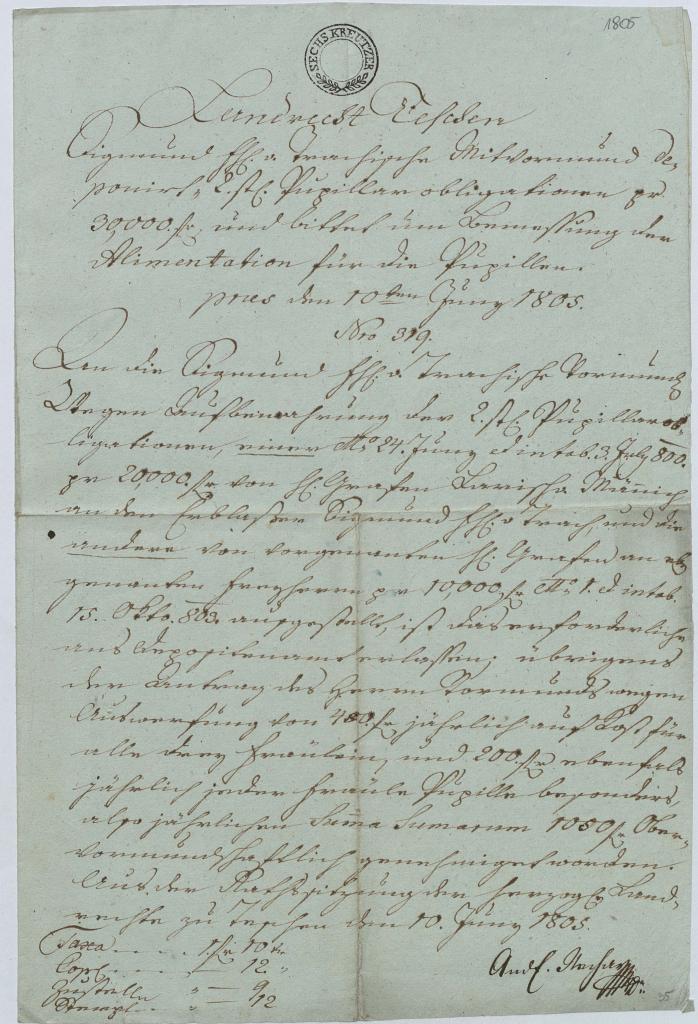 1805
SECHS KREUTZER
Landrecht Teschen
Sigmund Fh. v. Trachische Mitvormund de-
ponirt, 2. stk. Pupillar obligationen pr.
30,000. fr, und bittet um Bemessung der
Alimentation für die Pupillen.
praes den 10ten Juny 1805.
Nro 319.
An die Sigmund Fh. v. Trachische Vormund.
Wegen Aufbewahrung der 2. stk. Pupillarob-
ligationen, einer 24. Juny et intab. 3. July 800.
pr 20000. fr von H. Grafen Larisch v. Männich
an den Erblasser Sigmund Fh. v. Trach, und die
andere von vorgenanten H. Grafen an
genanten Freyherrn pr 10,000. fr 1. et intab.
15. Okto. 803. ausgestellt, ist das erforderliche
ans Depositenamt erlassen; übrigens
der Antrag des Herrn Vormunds wegen
Auswerfung von 450. fr jährlich auf Kost für
alle drey Fräulein, und 200. fr ebenfals
jährlich jeder Fräule Pupille besonders,
also jährlichen Suma Sumarum 1050 fr Ober-
vormundschaftlich genehmiget worden.
Aus der Rathssitzung der herzogl. Land-
rechte zu Teschen den 10. Juny 1805.
Taxa . . . . 1. fr 10 kr
Copl. . . . — 12. "
Zustellu " — 9
Stempl . . " — 12
And.
35